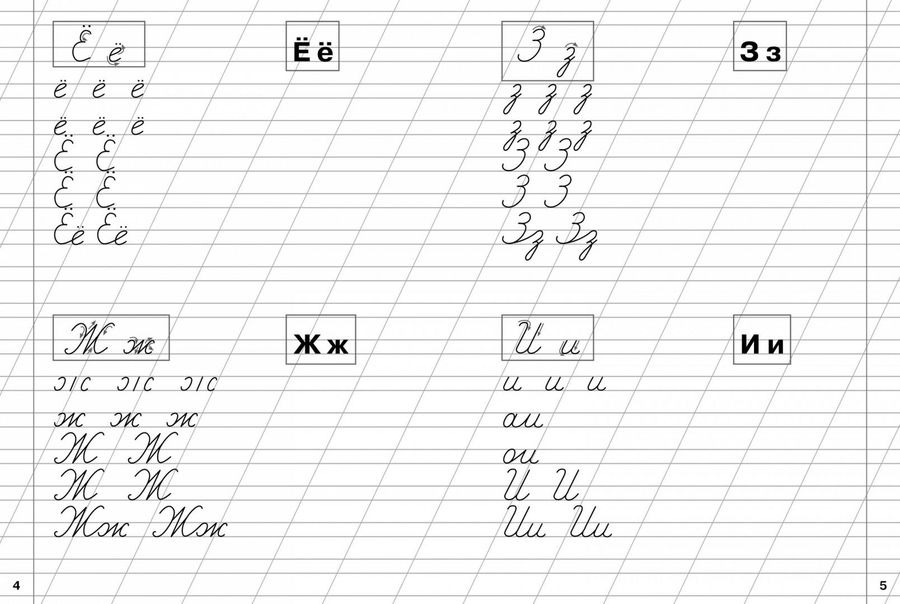 Ё ё Ё ё
ё ё ё
ё ё ё
Ё Ё
Ё Ё
Ёё Ёё
Ж ж Ж ж
ж ж ж
ж ж ж
Ж Ж
Ж Ж
Жж Жж
4
З з З з
з з з
з з з
З З
З З
Зз Зз
И и И и
и и и
аи
ои
И И
Ии Ии
5